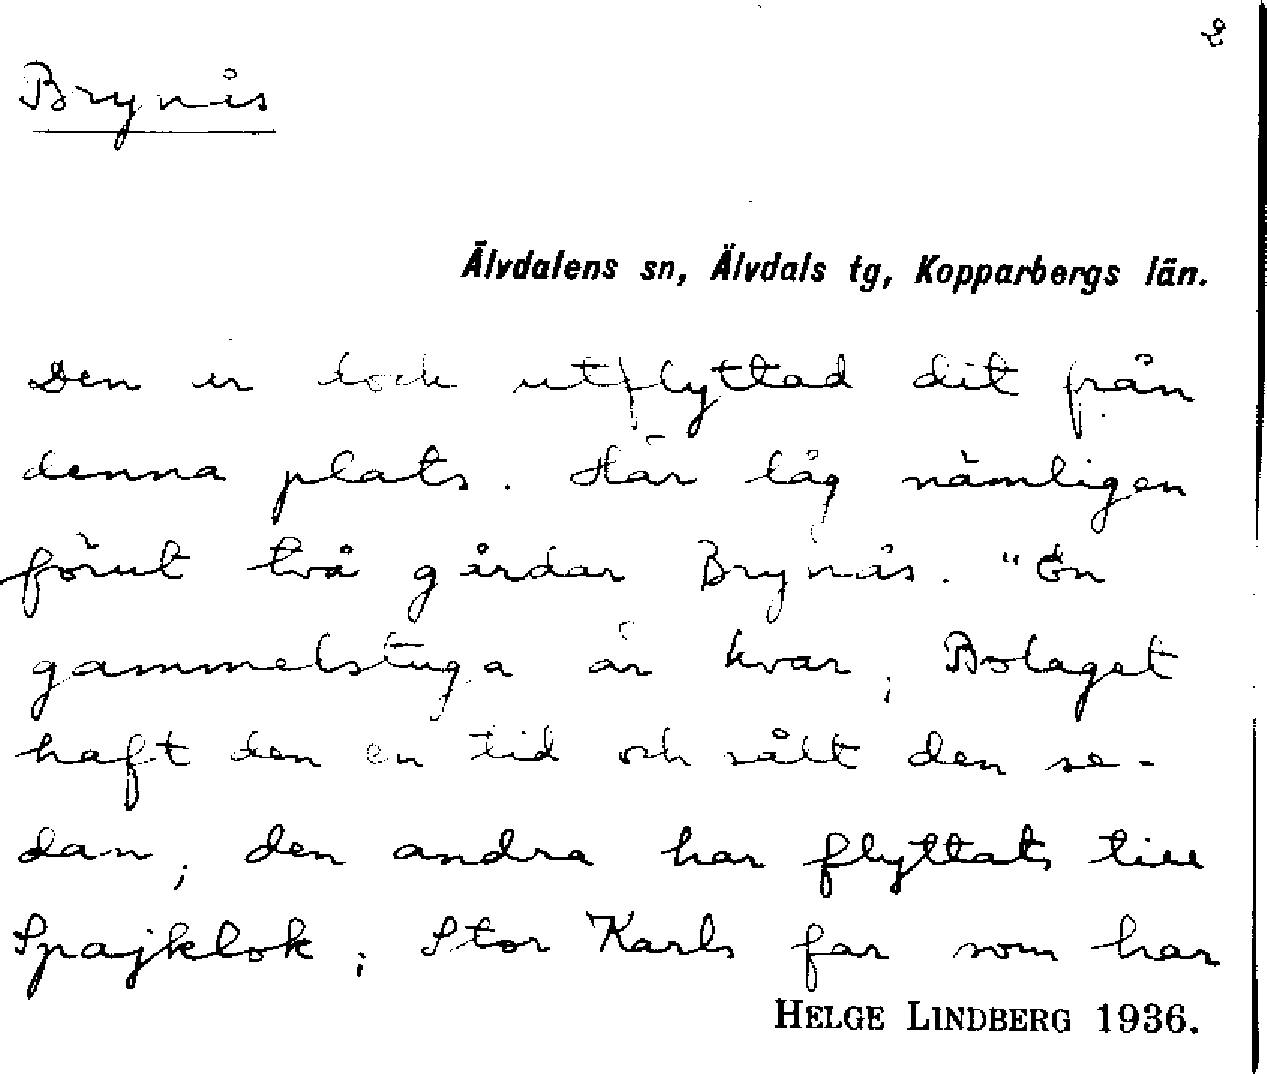 2
Brynås
Älvdalens sn, Älvdals tg, Kopparbergs län.
Den är dock utflyttad dit från
denna plats. Här låg nämligen
förut två gårdar Brynås. "En
gammelstuga är kvar; Bolaget
haft den en tid och sålt den se-
dan; den andra har flyttats till
Spajklok; Stor Karls far som har
HELGE LINDBERG 1936.